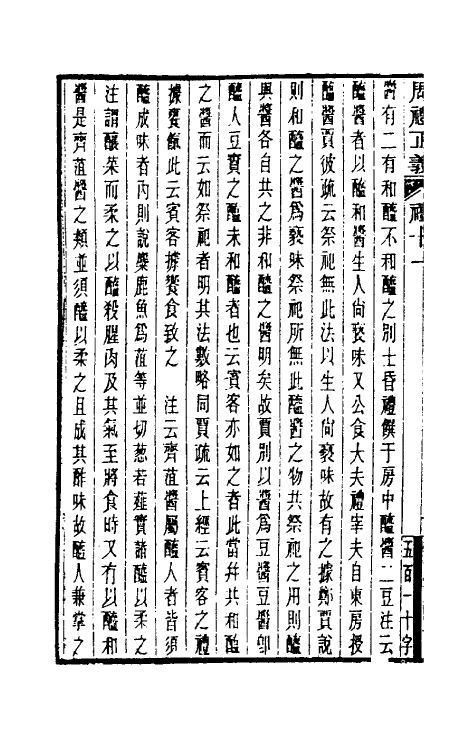 周禮正義 禮十一 五百一十字
醬有二有和醯不和醯之別士昏禮饌于房中醯醬二豆注云
醯醬者以醯和醬生人尚褻味又公食大夫禮宰夫自東房授
醯醬賈彼疏云祭祀無此法以生人尚褻味故有之據鄭賈說
則和醯之醬爲褻味祭祀所無此醯醬之物共祭祀之用則醯
與醬各自共之非和醯之醬明矣故賈別以醬爲豆醬豆醬卽
醢人豆實之醢未和醯者也云賓客亦如之者此當幷共和醯
之醬而云如祭祀者明其法數略同賈疏云上經云賓客之禮
據饔餼此云賓客據饗食致之　注云齊菹醬屬醯人者皆須
醯成味者內則說麋鹿魚爲菹等並切葱若薤實諸醯以柔之
注謂釀菜而柔之以醯殺腥肉及其氣至將食時又有以醯和
醬是齊菹醬之類並須醯以柔之且成其酢味故醯人兼掌之